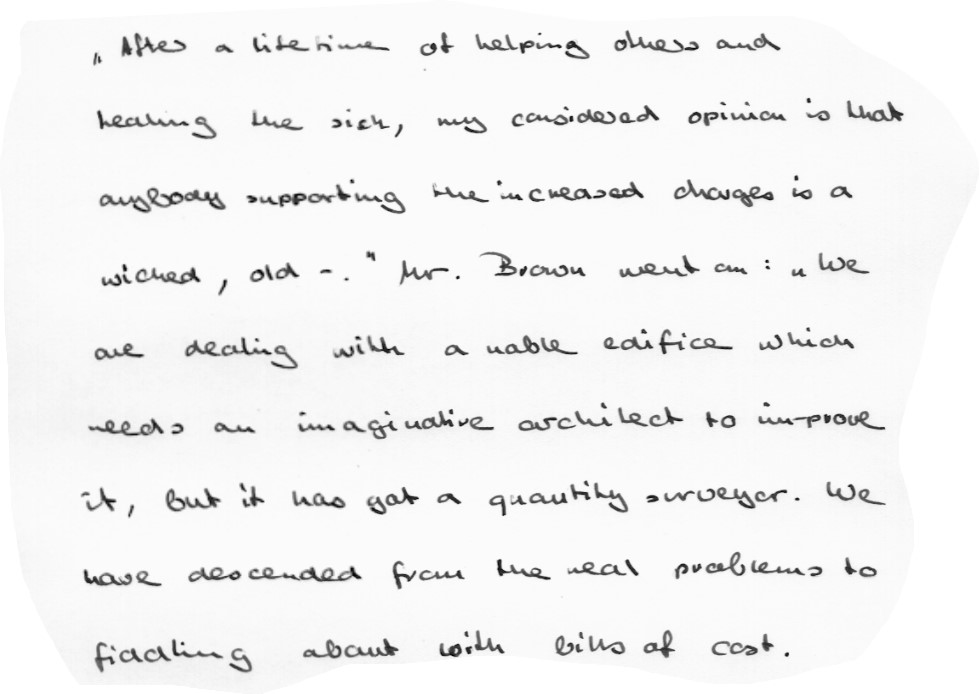 „After a lifetime of helping others and
healing the sick, my considered opinion is that
anybody supporting the increased charges is a
wicked, old -." Mr. Brown went on: „We
are dealing with a noble edifice which
needs an imaginative architect to improve
it, but it has got a quantity surveyor. We
have descended from the real problems to
fiddling about with bills of cost.